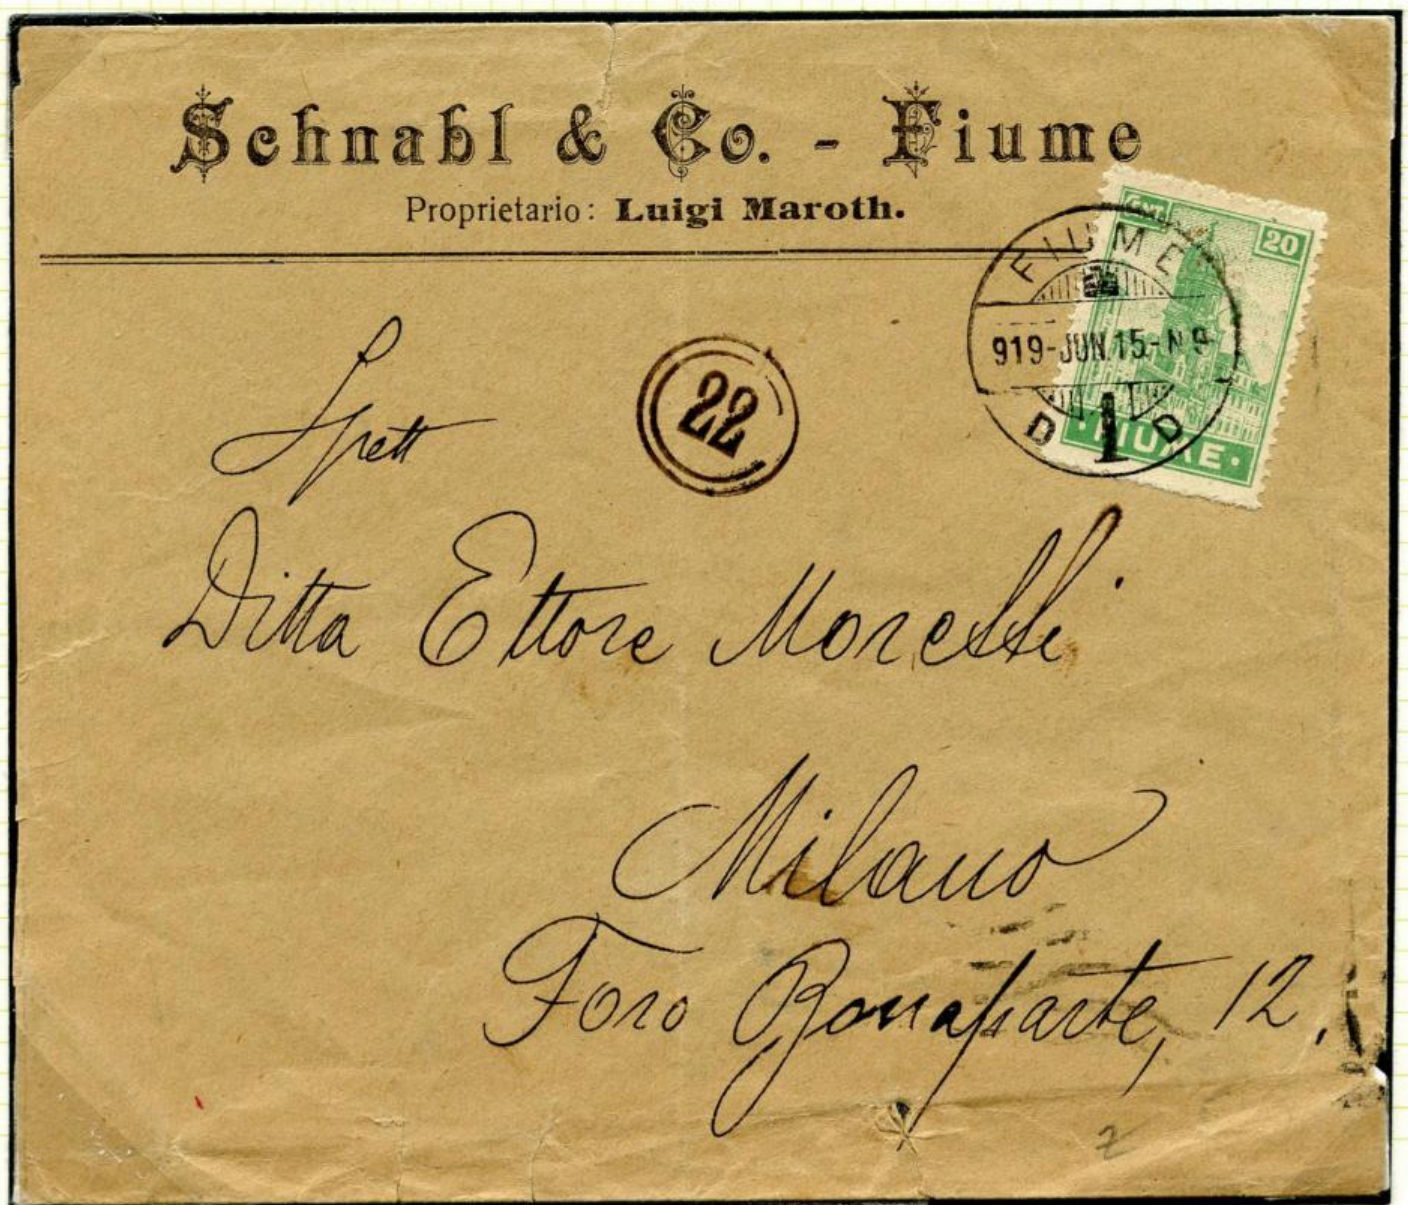 Schnabl & Co. - Fiume
Proprietario: Luigi Maroth.
20
FIUME
919-JUN.15-N9
D 1 D
FIUME
22
Spett
Ditta Ettore Morelli
Milano
Foro Bonaparte, 12.